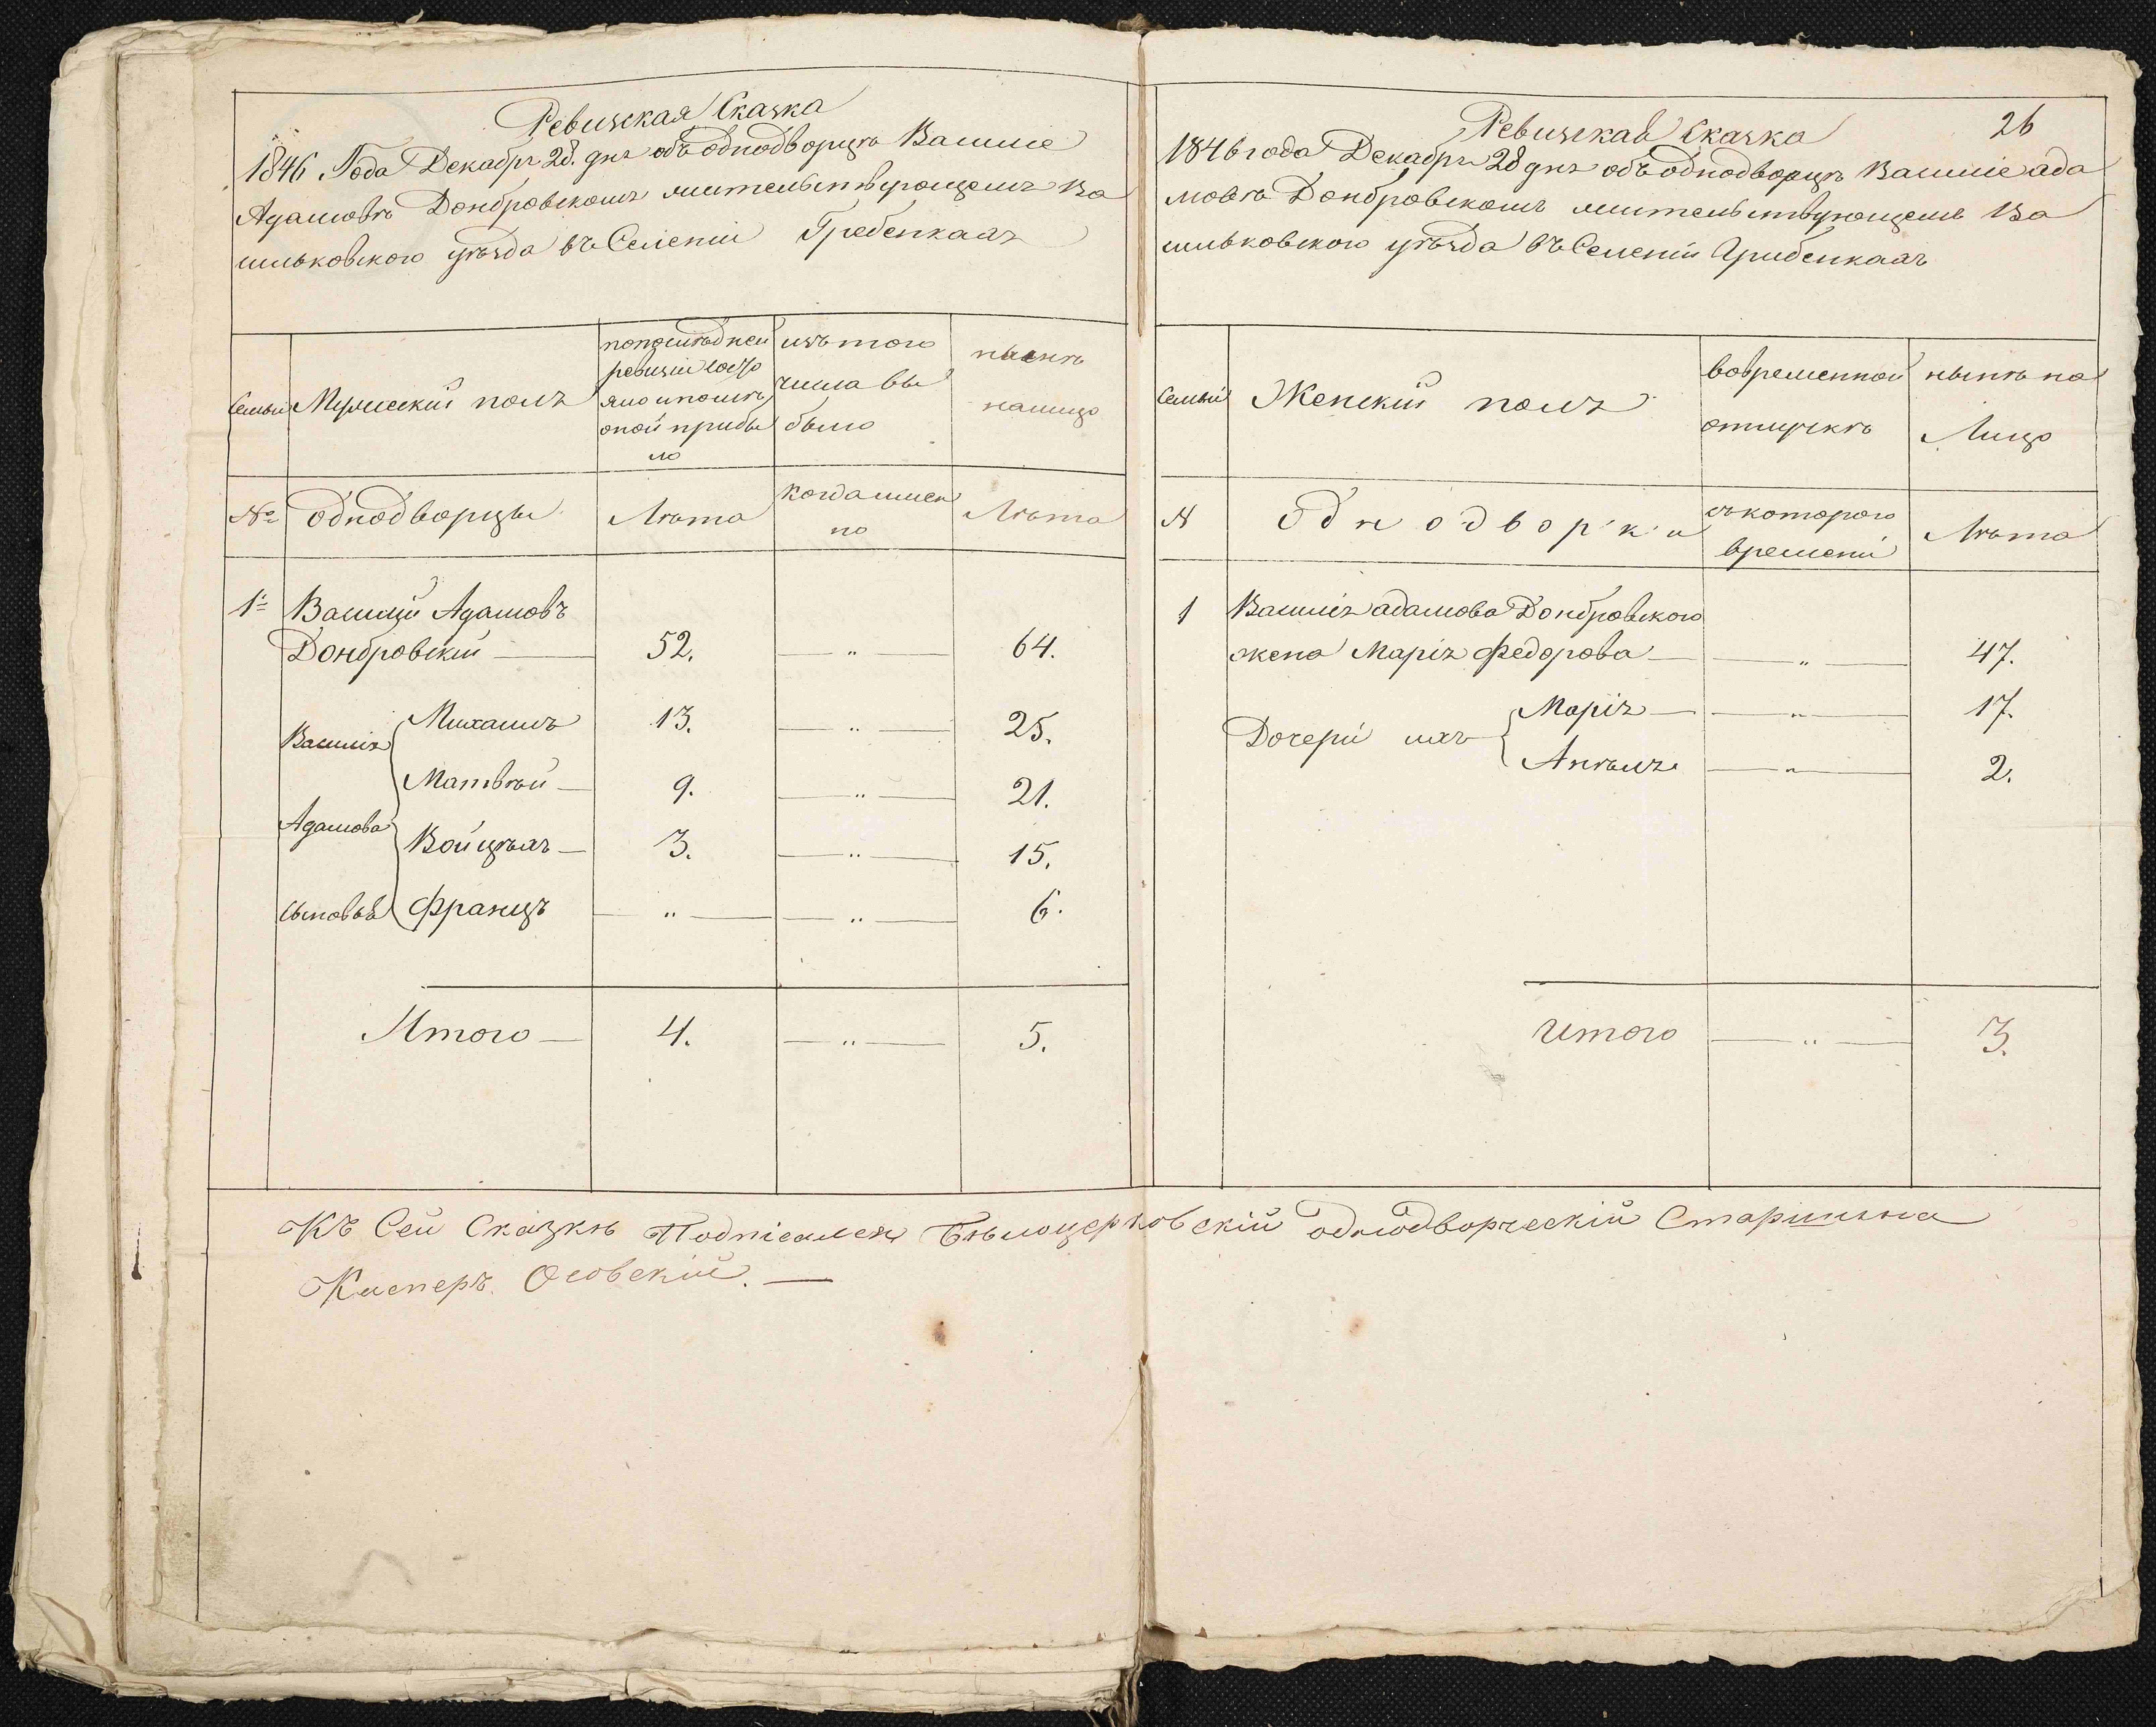 Ревизская Сказка
1846 Года Декабря 28. дня объ однодворцѣ Василіе
Адамовѣ Домбровскомъ жительствующемъ Ва
сильковского уѣзда въ Селеніи Гребенкахъ
Семьи
Мужеский полъ
попослѣдней
ревизіи состо
яло и послѣ
оной прибы
ло
изъ того
числа вы
было
нынѣ
налицо
№
однодворцы
Лѣта
когда имен
но
Лѣта
1.
Василій Адамовъ
Домбровскій — 52. — " — 64.
Василія
Адамова
сыновья
Михаилъ 13. — " — 25.
Матвѣй — 9. — " — 21.
Войцѣхъ — 3. — " — 15.
Францъ — " — — " — 6.
Итого — 4. — " — 5.
26
Ревизская Сказка
1846 года Декабря 28 дня объ однодворцѣ Василіе ада
мовѣ Домбровскомъ жительствующемъ Ва
сильковского уѣзда въ Селеніи Грибенкахъ
Семьи
Женскій полъ
вовременной
отлучкѣ
нынѣ на
Лицо
№
Однодворки
съ которого
времени
Лѣта
1 Василія адамова Домбровского
жена Марія Федорова — — " — 47.
Дочери ихъ
Марія — — " — 17.
Анѣля — " — 2.
Итого — " — 3.
Къ Сей Сказкѣ Подпісался Бѣлоцерковскій однодворческій Старшина
Касперъ Осовскій. —